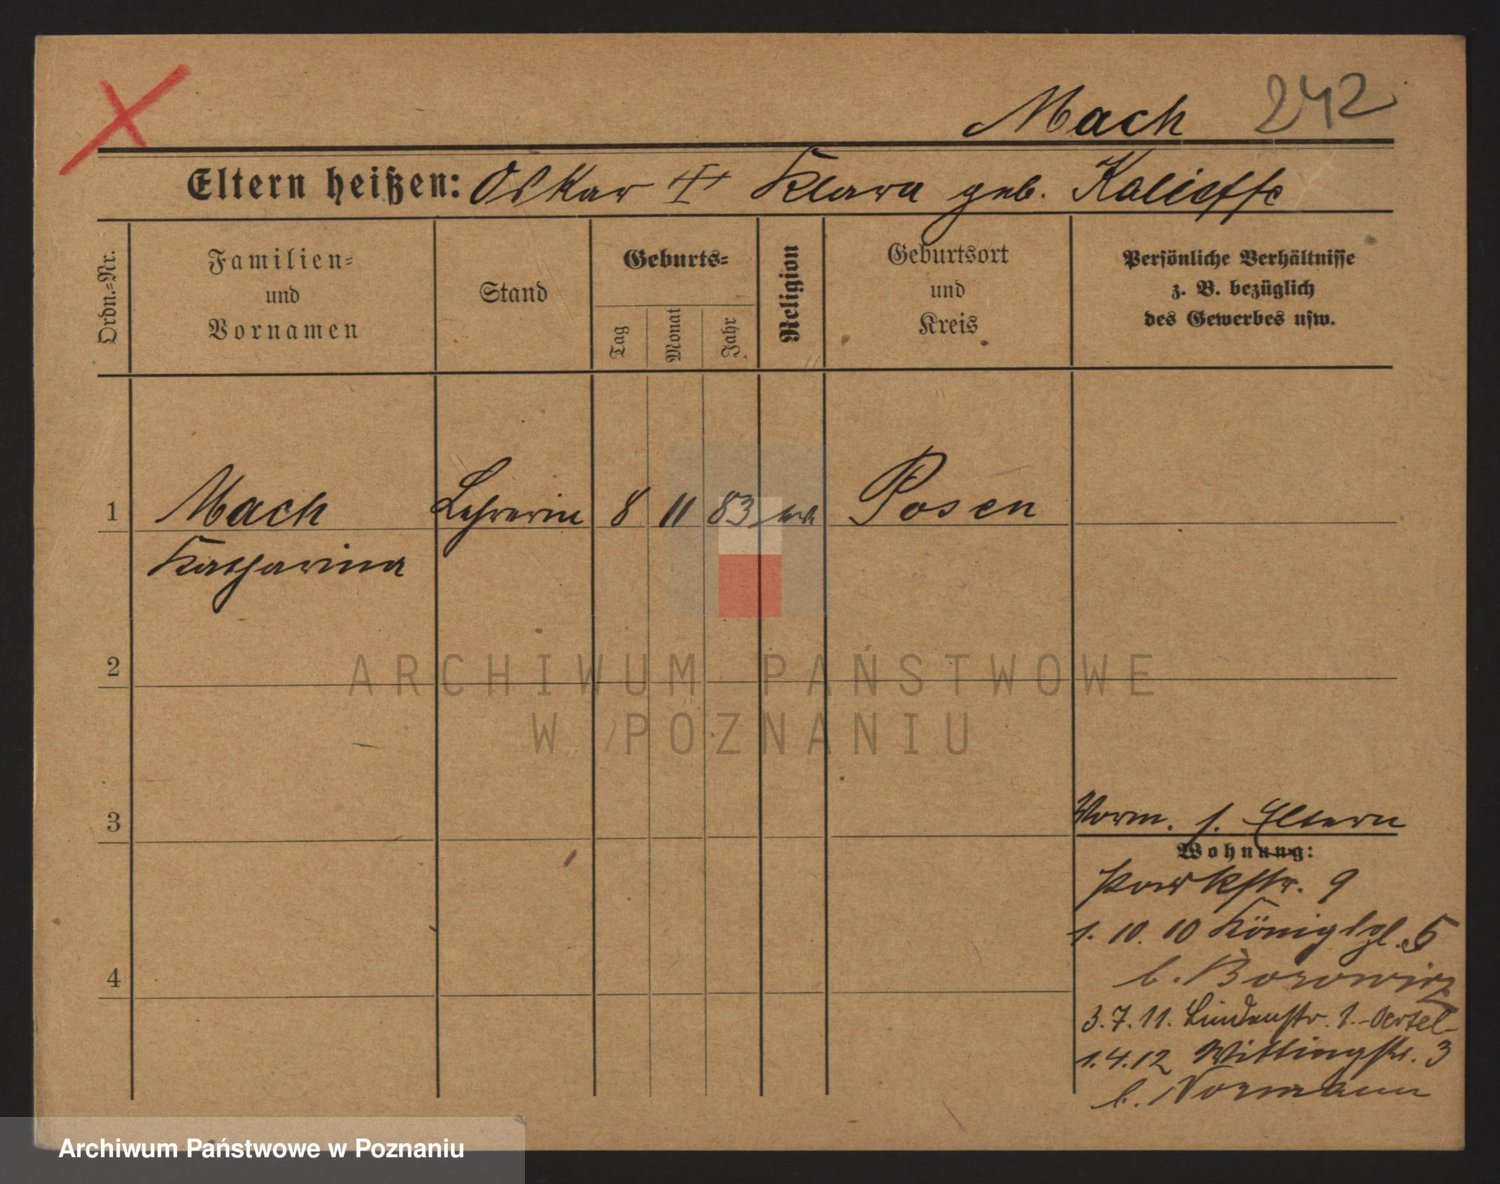 Mach 242
Eltern heißen: Oskar Klara geb.
Ordn.-Nr.
Familien-
und
Vornamen
Stand
Geburts-
Tag
Monat
Jahr
Religion
Geburtsort
und
Kreis
Persönliche Verhältnisse
z. B. bezüglich
des Gewerbes usw.
1 Mach Lehrerin 8 11 83 Posen
Katharina
2
3
4
Vorm. s. Eltern
Wohnung:
Parkstr. 9
1. 10. 10 Königspl. 5
b. Borowicz
3. 7. 11. Lindenstr. 1. Oertel
1. 4. 12 Wittingstr. 3
b. Normann
ARCHIWUM PAŃSTWOWE
W POZNANIU
Archiwum Państwowe w Poznaniu